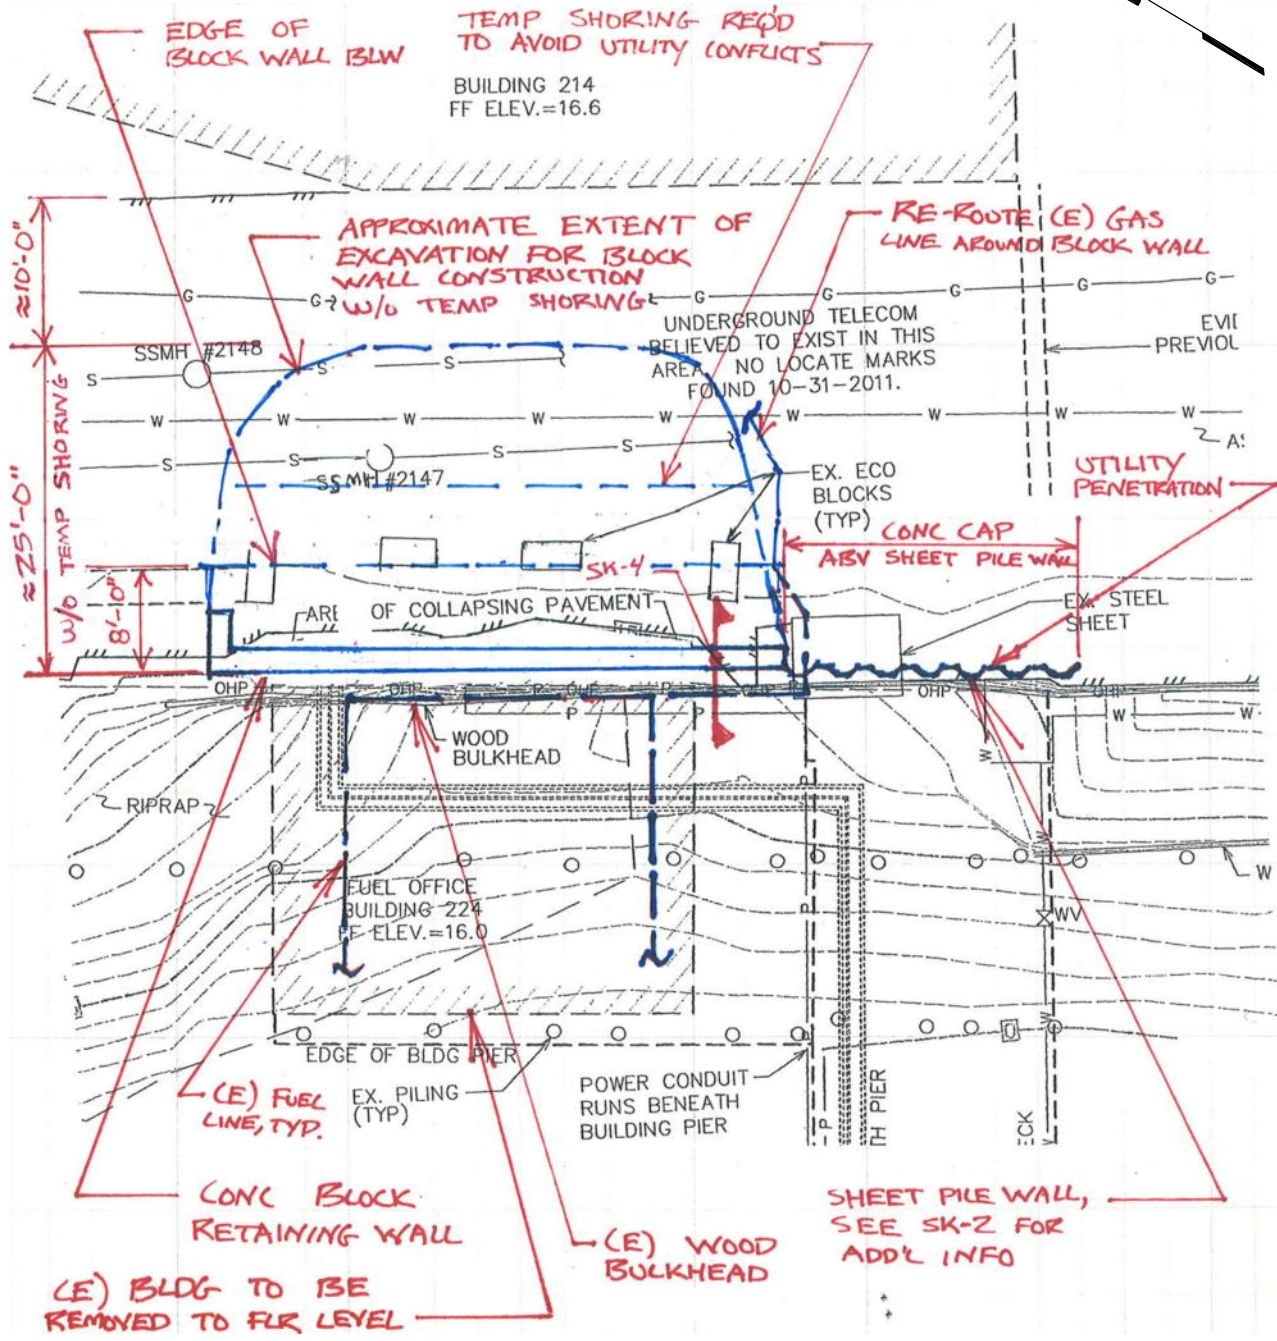 EDGE OF
BLOCK WALL BLW
TEMP SHORING REQ'D
TO AVOID UTILITY CONFLICTS
BUILDING 214
FF ELEV.=16.6
≈10'-0"
APPROXIMATE EXTENT OF
EXCAVATION FOR BLOCK
WALL CONSTRUCTION
W/O TEMP SHORING
RE-ROUTE (E) GAS
LINE AROUND BLOCK WALL
G
G
G
G
G
G
G
UNDERGROUND TELECOM
BELIEVED TO EXIST IN THIS
AREA. NO LOCATE MARKS
FOUND 10-31-2011.
PREVIOU
SSMH #2148
S
S
S
W
W
W
W
W
W
W
W
W
S
S
S
S
SSMH #2147
≈25'-0"
W/O TEMP SHORING
8'-0"
EX. ECO
BLOCKS
(TYP)
UTILITY
PENETRATION
CONC CAP
ABV SHEET PILE WALL
SK-4
OF COLLAPSING PAVEMENT
EX. STEEL
SHEET
OHP
OHP
P
OHP
OHP
OHP
OHP
P
P
W
W
W
WOOD
BULKHEAD
RIPRAP
P
W
W
FUEL OFFICE
BUILDING 224
FF ELEV.=16.0
P
WV
W
EDGE OF BLDG PIER
P
(E) FUEL
LINE, TYP.
EX. PILING
(TYP)
POWER CONDUIT
RUNS BENEATH
BUILDING PIER
P
TH PIER
ECK
CONC BLOCK
RETAINING WALL
(E) WOOD
BULKHEAD
SHEET PILE WALL,
SEE SK-2 FOR
ADD'L INFO
(E) BLDG TO BE
REMOVED TO FLR LEVEL